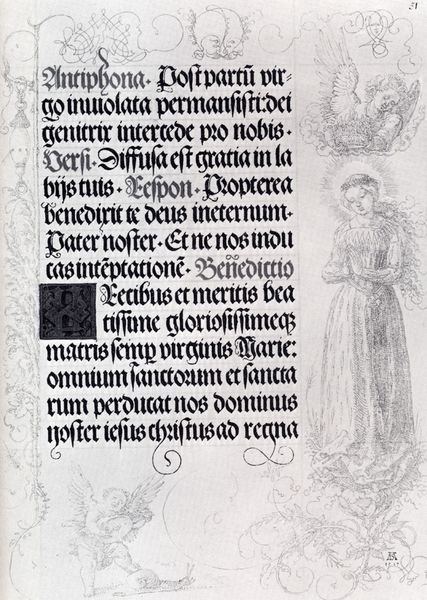 51
Antiphona. Post partū vir-
go inuiolata permansisti:dei
genitrix intercede pro nobis.
Versi. Diffusa est gratia in la
bijs tuis. Respon. Propterea
benedixit te deus ineternum.
Pater noster. Et ne nos indu
cas intēptationē. Beñedictio
PRecibus et meritis bea
tissime gloriosissimeqꝫ
matris semꝑ virginis Marie:
omnium sanctorum et sancta
rum perducat nos dominus
noster iesus christus ad regna
AD